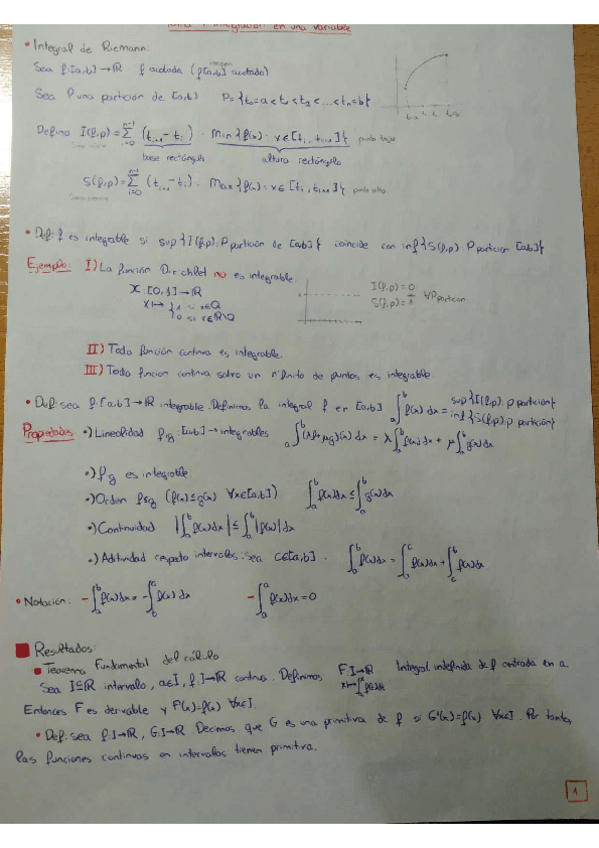 Integración en una variable
• Integral de Riemann:
Sea f:[a,b]→ℝ f acotada (f[a,b] acotado)
Sea P una partición de [a,b] P={t₀=a<t₁<t₂<...<tₙ=b}
Defino I(f,p)=∑_{i=0}^{n-1} (t_{i+1}-t_i) · Min{f(x): x∈[t_i, t_{i+1}]}
base rectángulo altura rectángulo
S(f,p)=∑_{i=0}^{n-1} (t_{i+1}-t_i) · Max{f(x): x∈[t_i, t_{i+1}]} punto alto
• Def: f es integrable si sup{I(f,p): P partición de [a,b]} coincide con inf{S(f,p): P partición [a,b]}
Ejemplo: I) La función Dirichlet no es integrable.
X:[0,1]→ℝ
x↦{1 si x∈ℚ
0 si x∈ℝ\ℚ
I(f,p)=0
S(f,p)=1 ∀P partición
II) Toda función continua es integrable.
III) Toda función continua salvo un nº finito de puntos es integrable.
• Def: sea f:[a,b]→ℝ integrable. Definimos la integral f en [a,b] ∫_a^b f(x) dx = sup{I(f,p): p partición}
inf{S(f,p): p partición}
Propiedades •) Linealidad f,g:[a,b]→ integrables ∫_a^b (λf+μg)(x) dx = λ∫_a^b f(x) dx + μ∫_a^b g(x) dx
•) f·g es integrable
•) Orden f≤g (f(x)≤g(x) ∀x∈[a,b]) ∫_a^b f(x) dx ≤ ∫_a^b g(x) dx
•) Continuidad |∫_a^b f(x) dx| ≤ ∫_a^b |f(x)| dx
•) Aditividad respeto intervalos: sea c∈[a,b]. ∫_a^b f(x) dx = ∫_a^c f(x) dx + ∫_c^b f(x) dx
• Notación: -∫_a^b f(x) dx = -∫_b^a f(x) dx -∫_a^a f(x) dx = 0
Resultados:
Teorema Fundamental del cálculo
Sea I⊆ℝ intervalo, a∈I, f:I→ℝ continua. Definimos F:I→ℝ Integral indefinida de f centrada en a.
x↦∫_a^x f(t)dt
Entonces F es derivable y F'(x)=f(x) ∀x∈I.
• Def: sea f:I→ℝ, G:I→ℝ Decimos que G es una primitiva de f si G'(x)=f(x) ∀x∈I. Por tanto,
las funciones continuas en intervalos tienen primitiva.
1